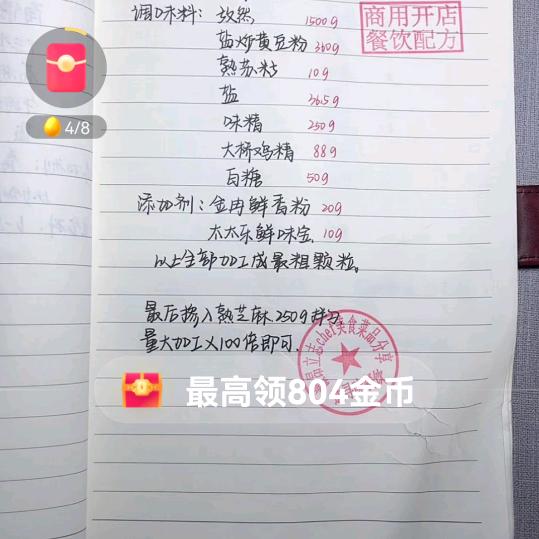 调味料：孜然 1500g
商用开店
餐饮配方
盐炒黄豆粉 360g
熟苏籽 10g
盐 365g
4/8
味精 250g
大桥鸡精 88g
白糖 50g
添加剂：金冉鲜香粉 20g
太太乐鲜味宝 10g
以上全部加工成最粗颗粒。
最后掺入熟芝麻250g拌匀
量大加工×100倍即可.
chef美食菜品分享
最高领804金币